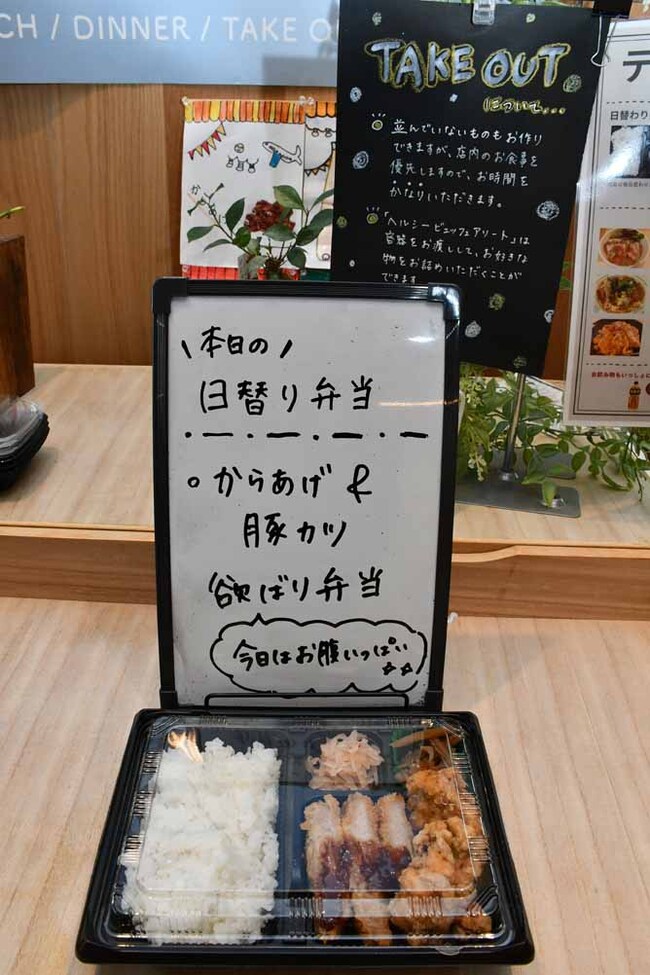 CH / DINNER / TAKE O
TAKE OUT
について...
並んでいないものもお作り
できますが、店内のお食事を
優先しますので、お時間を
かなりいただきます。
「ヘルシービュッフェアリート」は
容器をお渡しして、お好きな
物をお詰めいただくことが
できます
テ
日替わり
お飲み物もいっしょに
\ 本日の /
日替り弁当
○ からあげ &
豚カツ
欲ばり弁当
今日はお腹いっぱい
☆☆